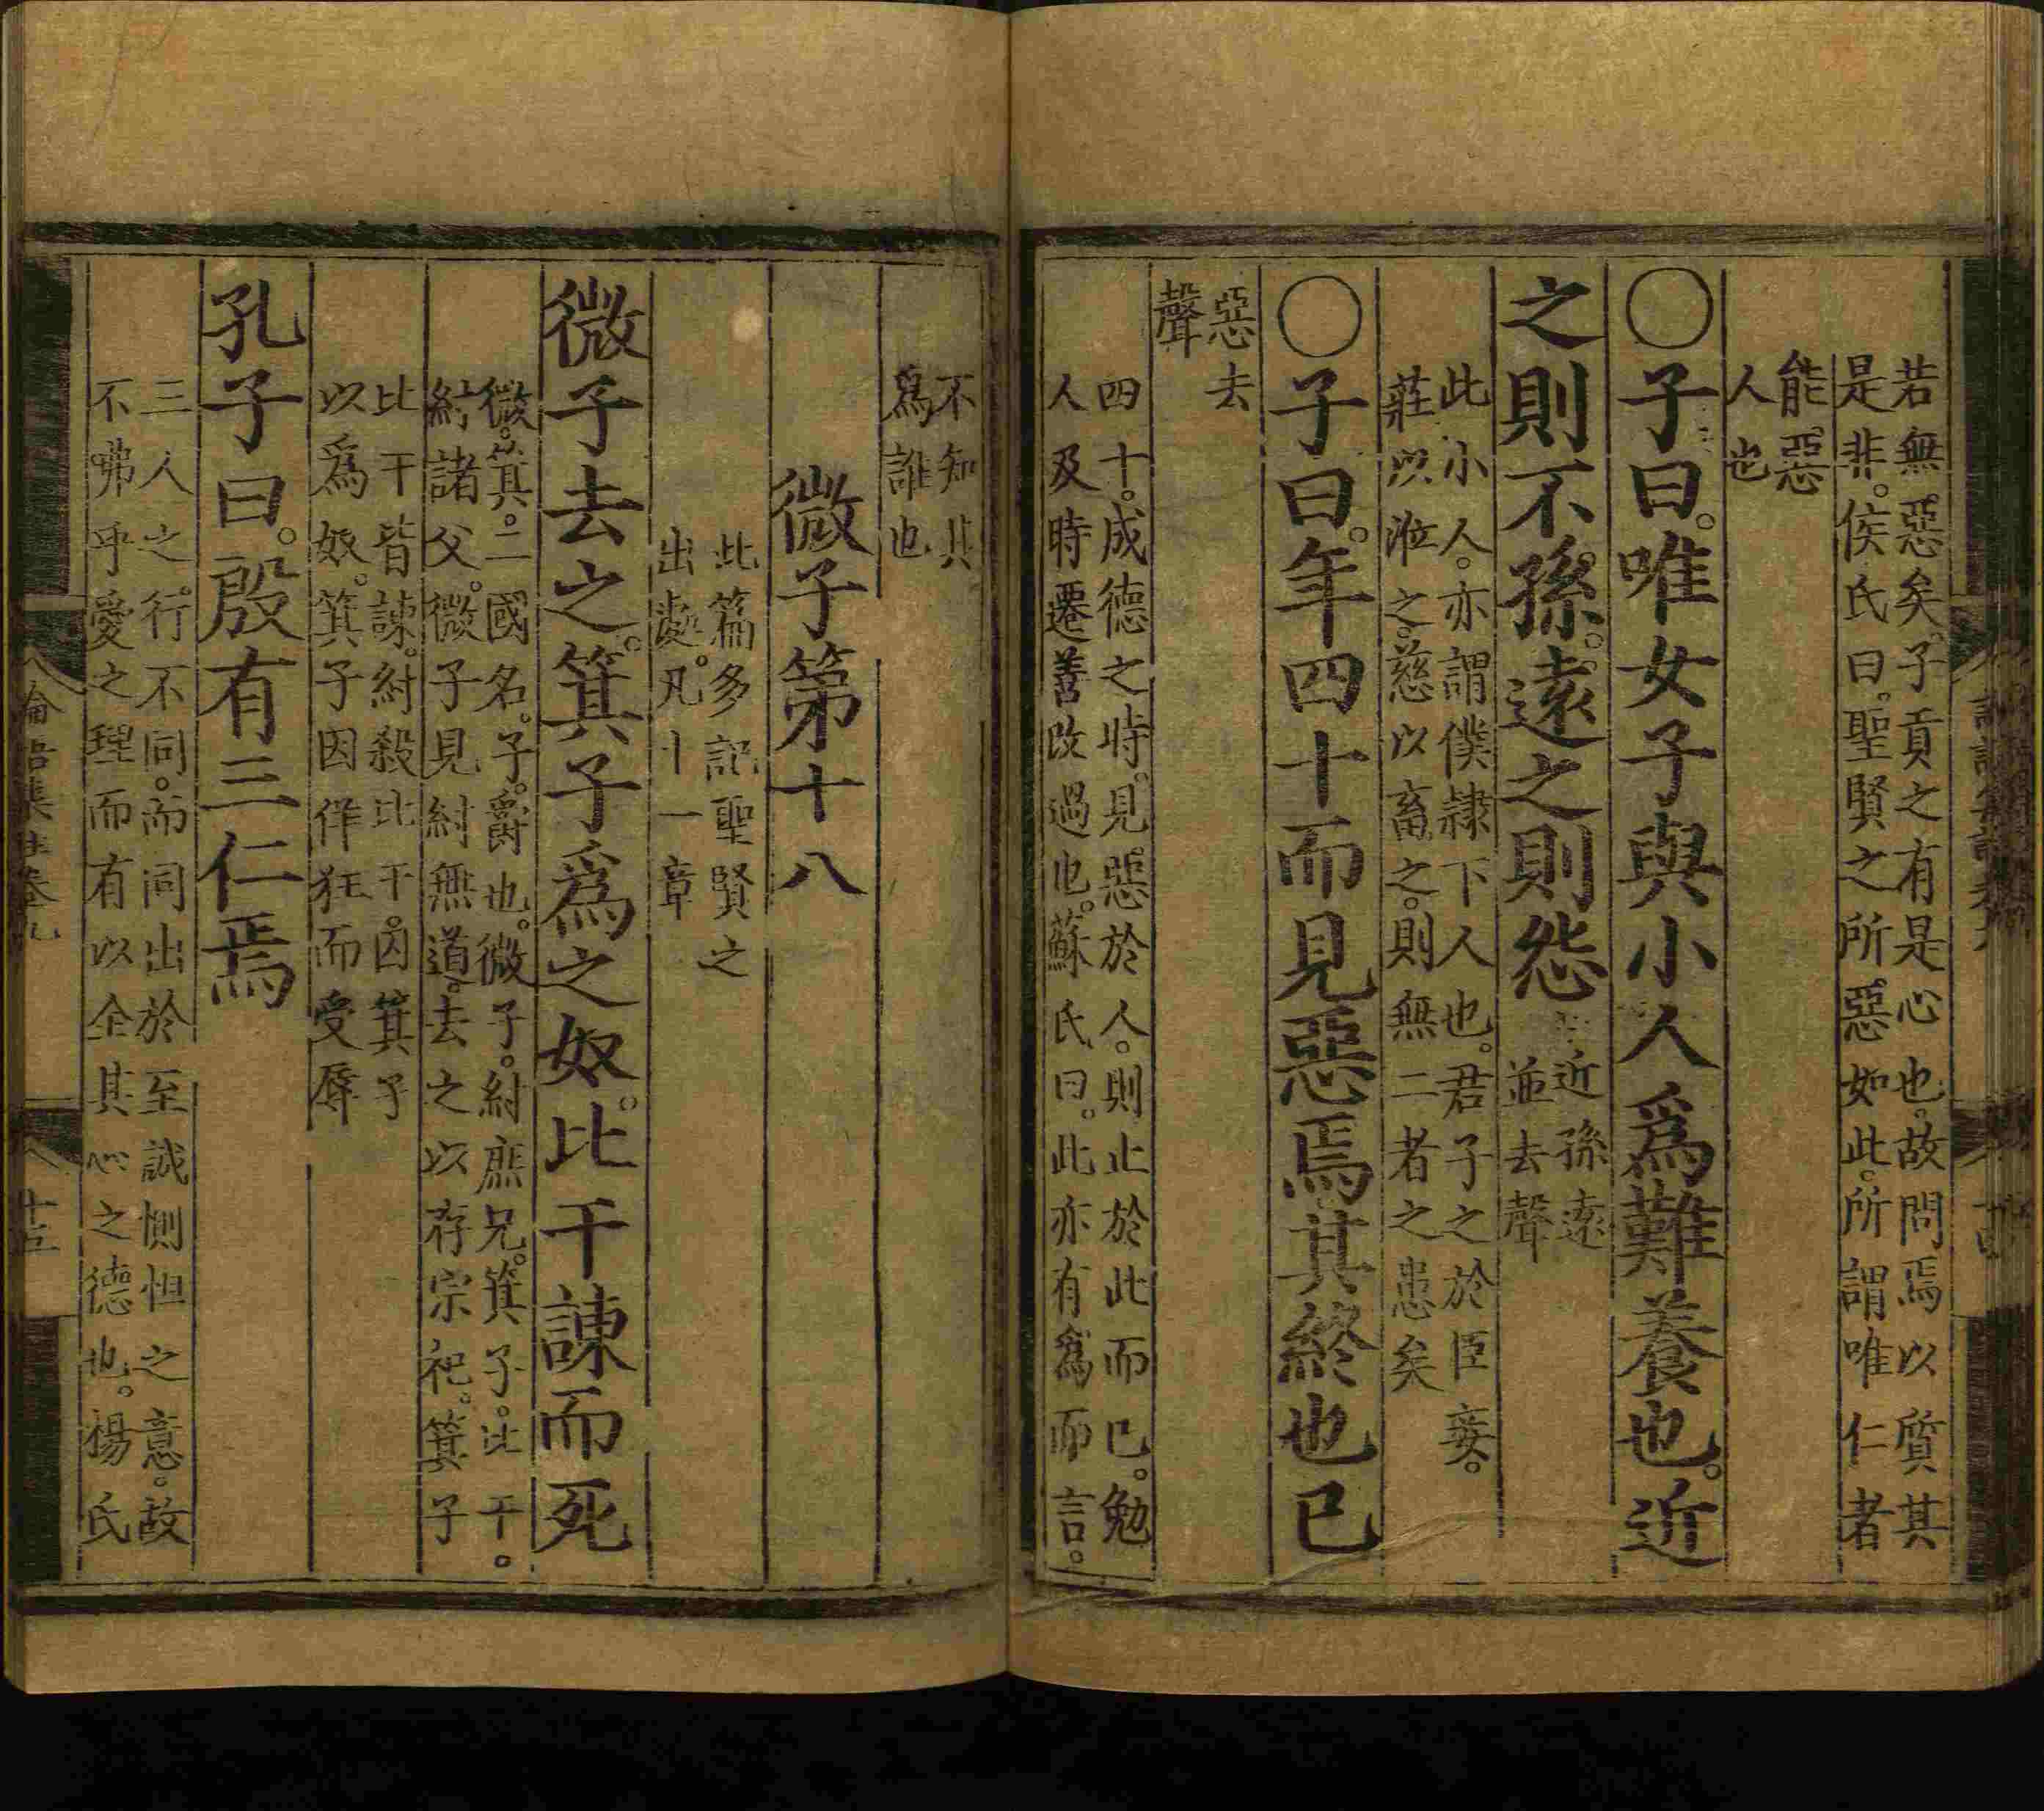 若無惡矣。子貢之有是心也。故問焉以質其
是非。侯氏曰。聖賢之所惡如此。所謂唯仁者
能惡
人也
〇子曰。唯女子與小人爲難養也。近
之則不孫。遠之則怨
近孫遠
並去聲
此小人。亦謂僕隷下人也。君子之於臣妾。
莊以涖之。慈以畜之。則無二者之患矣
〇子曰。年四十而見惡焉其終也已
惡去
聲
四十。成德之時。見惡於人。則止於此而已。勉
人及時遷善改過也。蘇氏曰。此亦有爲而言。
不知其
爲誰也
微子第十八
此篇多記聖賢之
出處。凡十一章
微子去之。箕子爲之奴。比干諫而死
微。箕。二國名。子。爵也。微子。紂庶兄。箕子。比干。
紂諸父。微子見紂無道。去之以存宗祀。箕子
比干皆諫。紂殺比干。囚箕子
以爲奴。箕子因佯狂而受辱
孔子曰。殷有三仁焉
三人之行不同。而同出於至誠惻怛之意。故
不咈乎愛之理而有以全其心之德也。楊氏
論語集註卷九